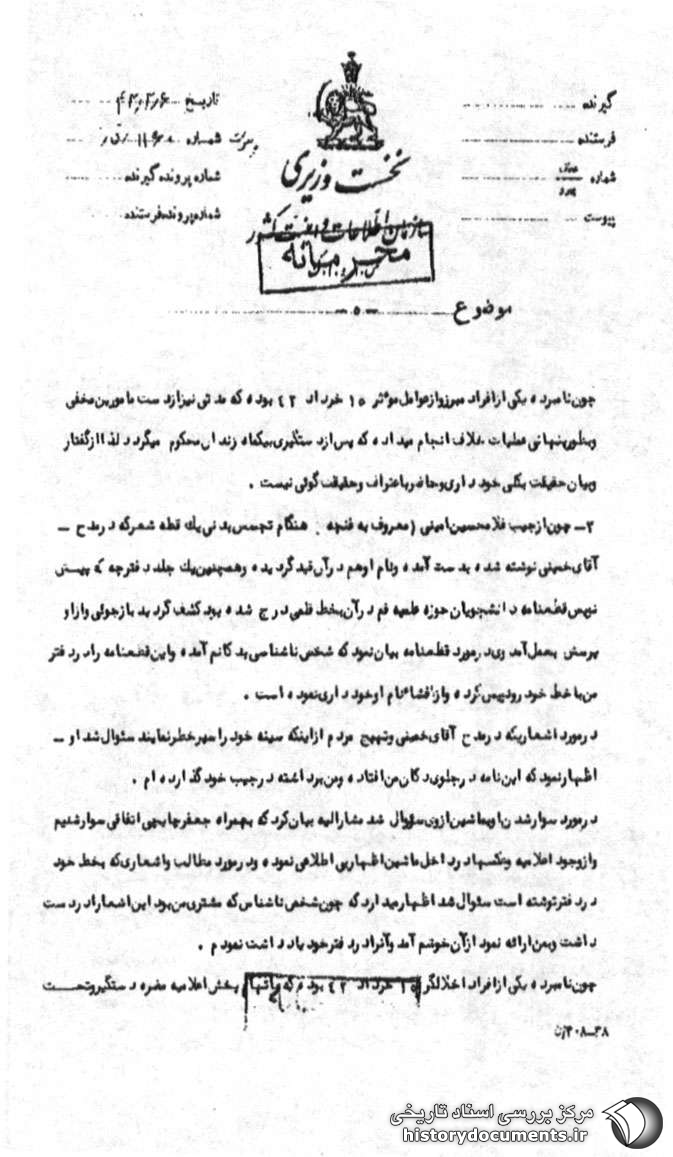 گیرنده
فرستنده
شماره
پیوست
تاریخ
شماره
شماره پرونده گیرنده
شماره پرونده فرستنده
نخست وزیری
سازمان اطلاعات و امنیت کشور
محرمانه
موضوع ـ ۵ ـ
چون نامبرده یکی از افراد مبرز و از عوامل موثر ۱۵ خرداد ۴۲ بوده که مدتی نیز از دست مامورین مخفی
و بطور پنهانی عملیات خلاف انجام میداده که پس از دستگیری بیکماه زندان محکوم میگردد لذا از گفتار
و بیان حقیقت بکلی خودداری و حاضر باعتراف و حقیقت گوئی نیست .
۲ـ چون از جیب غلامحسین امینی (معروف به غنچه هنگام تجسس بدنی یک قطعه شعر که در مدح ـ
آقای خمینی نوشته شده بدست آمده و نام او هم در آن قید گردیده و همچنین یک جلد دفترچه که پیش
نویس قطعنامه دانشجویان حوزه علمیه قم در آن بخط قلمی درج شده بود کشف گردید بازجوئی و از او
پرسش بعمل آمد وی در مورد قطعنامه بیان نمود که شخص ناشناسی بدکانم آمده و این قطعنامه را در دفتر
من با خط خود رونویس کرده و از افشاء نام او خودداری نموده است .
در مورد اشعاریکه در مدح آقای خمینی و تهییج مردم از اینکه سینه خود را سپر خطر نمایند سئوال شد او ـ
اظهار نمود که این نامه در جلوی دکان من افتاده و من برداشته در جیب خود گذارده ام .
در مورد سوار شدن او بماشین از وی سؤوال شد مشارالیه بیان کرد که بهمراه جعفر چایچی اتفاقی سوار شدیم
و از وجود اعلامیه و عکسها در داخل ماشین اظهار بی اطلاعی نموده و در مورد مطالب و اشعاری که بخط خود
در دفتر نوشته است سئوال شد اظهار میدارد که چون شخص ناشناس که مشتری من بود این اشعار را در دست
داشت و بمن ارائه نمود از آن خوشم آمد و آنرا در دفتر خود یادداشت نمودم .
چون نامبرده یکی از افراد اخلالگر ۱۵ خرداد ۴۲ بوده که باتهام پخش اعلامیه مضره دستگیر و تحت
۳۸ـ۳۰۸/ن
مرکز بررسی اسناد تاریخی
historydocuments.ir